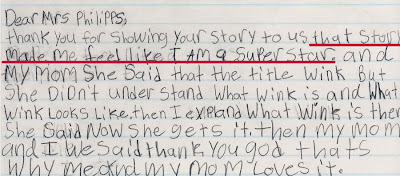 Dear Mrs Philipps,
thank you for showing your story to us that story
made me feel like I AM a superstar. and
My Mom She Said that the title wink But
She Didn't under stand What wink is and What
Wink Looks Like, then I expland What Wink is then
She Said Now she gets it. then my mom
and I We said thank you god thats
Why me and my mom Loves it.